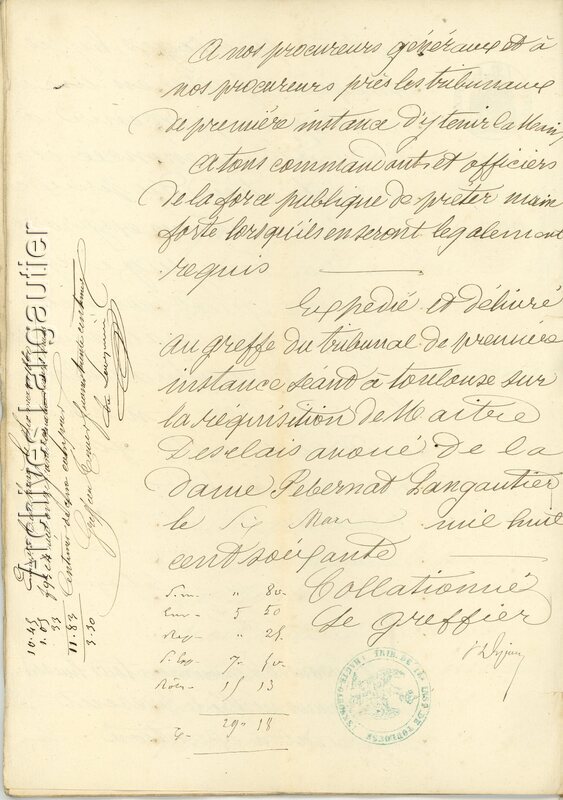 A nos procureurs généraux et à
nos procureurs près les tribunaux
de première instance d'y tenir la main
A tous commandants et officiers
de la force publique de prêter main
forte lorsqu'ils en seront légalement
requis
Expédié et délivré
au greffe du tribunal de première
instance séant à toulouse sur
la réquisition de Maitre
Deselais avoué de la
dame Pebernat Langautier
le Six Mars mil huit
cent soixante
Collationné
Le greffier
80
5 50
25
7
15 13
29 18
TRIB. DE
DE TOULOUSE
Archives Langautier
10.45
1.05
33
11.83
3.30